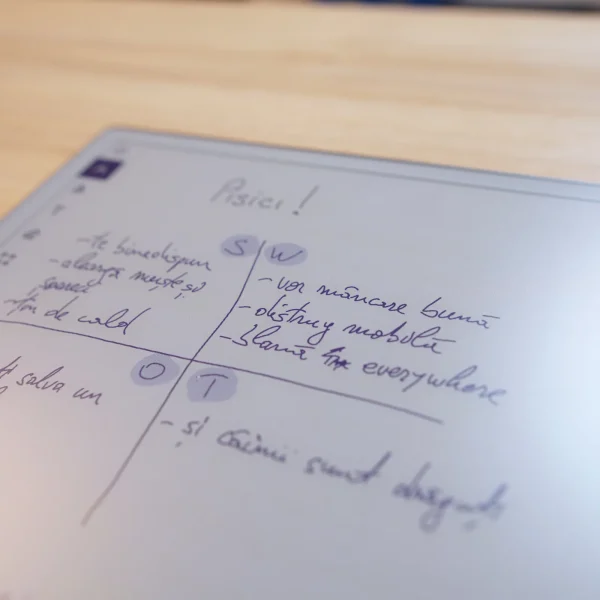 Pisici!
S
- te binedispun
- alungă muște și
șoareci
- țin de cald
W
- vor mâncare bună
- distrug mobilă
- blană everywhere
O
salva un
T
- și câinii sunt drăguți